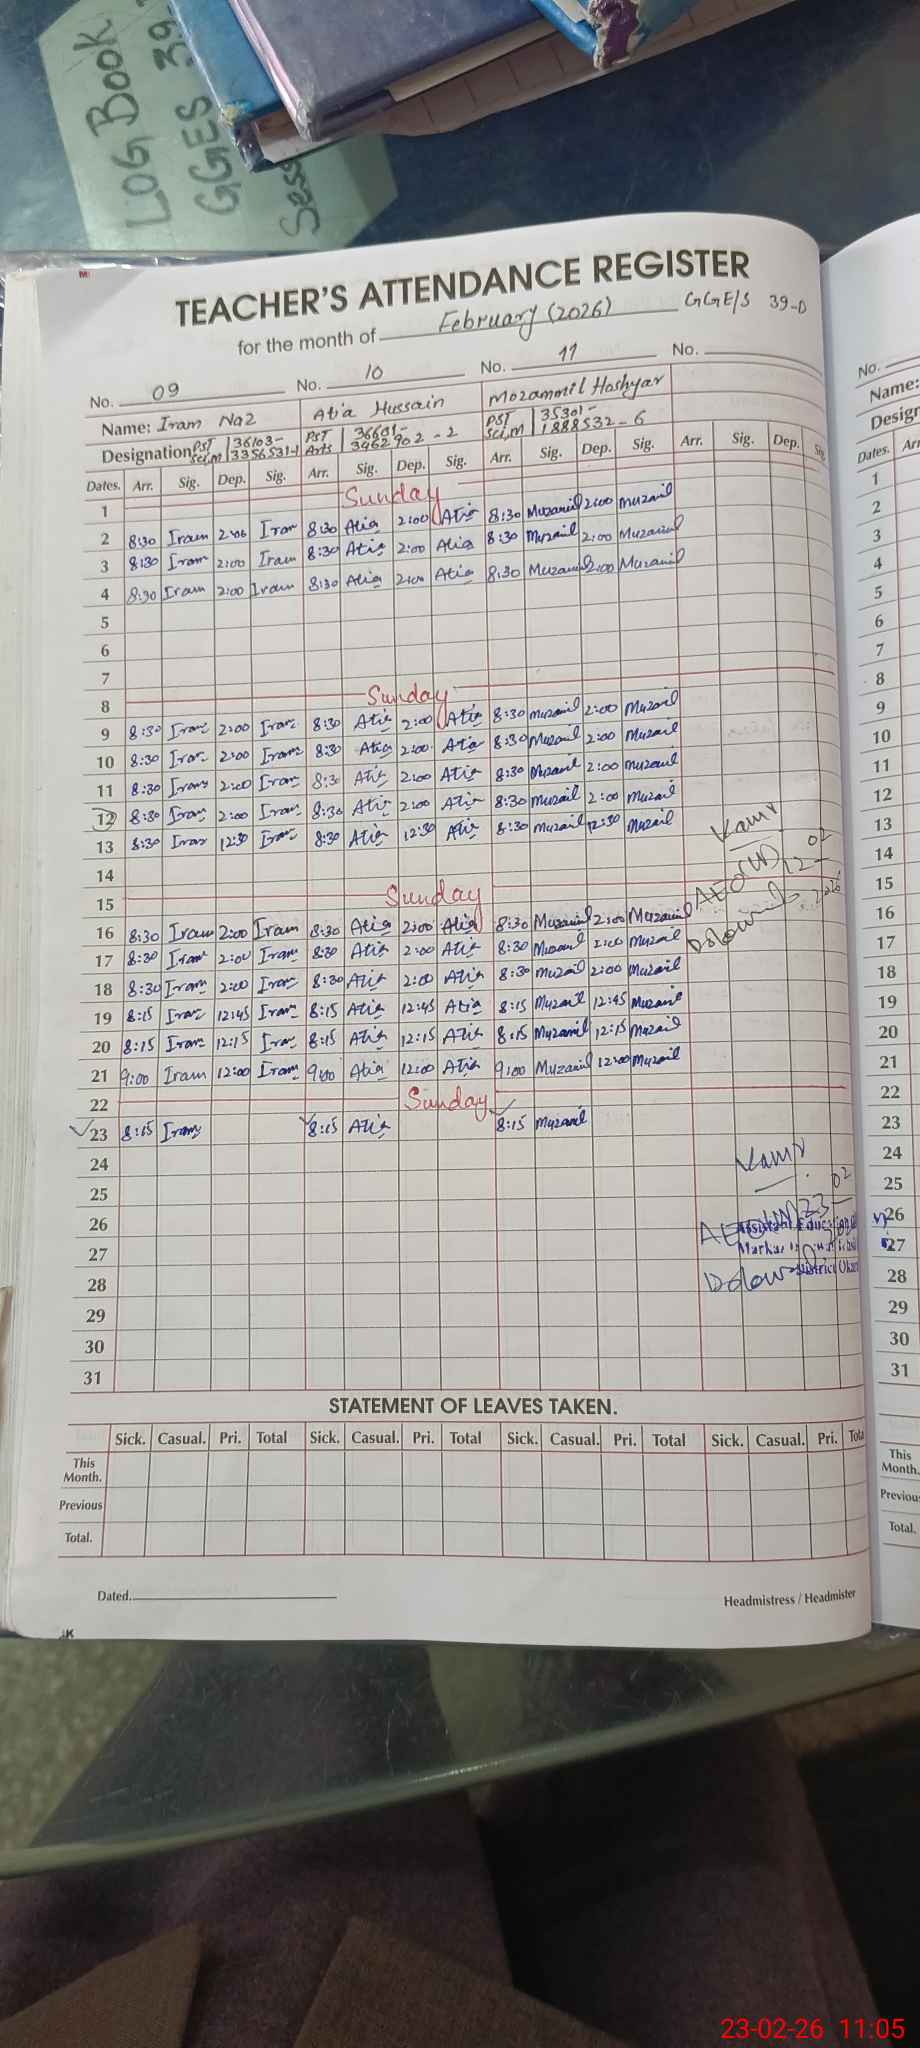 LOG Book 39
GGES
Sess
TEACHER'S ATTENDANCE REGISTER
for the month of February (2026) GGE/S 39-D
No. 09 No. 10 No. 11 No.
Name: Iram Naz Atia Hussain Mozammil Hoshyar
Designation PST Sci,M 36103-3356531-1 PST Arts 36601-3462902-2 PST Sci,M 35301-1888532-6
Dates. Arr. Sig. Dep. Sig. Arr. Sig. Dep. Sig. Arr. Sig. Dep. Sig. Arr. Sig. Dep. Sig.
1 Sunday
2 8:30 Iram 2:00 Iram 8:30 Atia 2:00 Atia 8:30 Muzamil 2:00 Muzamil
3 8:30 Iram 2:00 Iram 8:30 Atia 2:00 Atia 8:30 Muzamil 2:00 Muzamil
4 8:30 Iram 2:00 Iram 8:30 Atia 2:00 Atia 8:30 Muzamil 2:00 Muzamil
5
6
7
8 Sunday
9 8:30 Iram 2:00 Iram 8:30 Atia 2:00 Atia 8:30 Muzamil 2:00 Muzamil
10 8:30 Iram 2:00 Iram 8:30 Atia 2:00 Atia 8:30 Muzamil 2:00 Muzamil
11 8:30 Iram 2:00 Iram 8:30 Atia 2:00 Atia 8:30 Muzamil 2:00 Muzamil
12 8:30 Iram 2:00 Iram 8:30 Atia 2:00 Atia 8:30 Muzamil 2:00 Muzamil
13 8:30 Iram 12:30 Iram 8:30 Atia 12:30 Atia 8:30 Muzamil 12:30 Muzamil
14
15 Sunday
16 8:30 Iram 2:00 Iram 8:30 Atia 2:00 Atia 8:30 Muzamil 2:00 Muzamil
17 8:30 Iram 2:00 Iram 8:30 Atia 2:00 Atia 8:30 Muzamil 2:00 Muzamil
18 8:30 Iram 2:00 Iram 8:30 Atia 2:00 Atia 8:30 Muzamil 2:00 Muzamil
19 8:15 Iram 12:45 Iram 8:15 Atia 12:45 Atia 8:15 Muzamil 12:45 Muzamil
20 8:15 Iram 12:15 Iram 8:15 Atia 12:15 Atia 8:15 Muzamil 12:15 Muzamil
21 9:00 Iram 12:00 Iram 9:00 Atia 12:00 Atia 9:00 Muzamil 12:00 Muzamil
22 Sunday
23 8:15 Iram 8:15 Atia 8:15 Muzamil
24
25
26
27
28
29
30
31
AEO(W) 12-02
2026
AEO(W) 23-02
Assistant Education
Markaz
District Okara
STATEMENT OF LEAVES TAKEN.
Sick. Casual. Pri. Total Sick. Casual. Pri. Total Sick. Casual. Pri. Total Sick. Casual. Pri. Total
This Month.
Previous
Total.
Dated. Headmistress / Headmister
No.
Name:
Dates.
1
2
3
4
5
6
7
8
9
10
11
12
13
14
15
16
17
18
19
20
21
22
23
24
25
26
27
28
29
30
31
This Month.
Previous
Total.
23-02-26 11:05